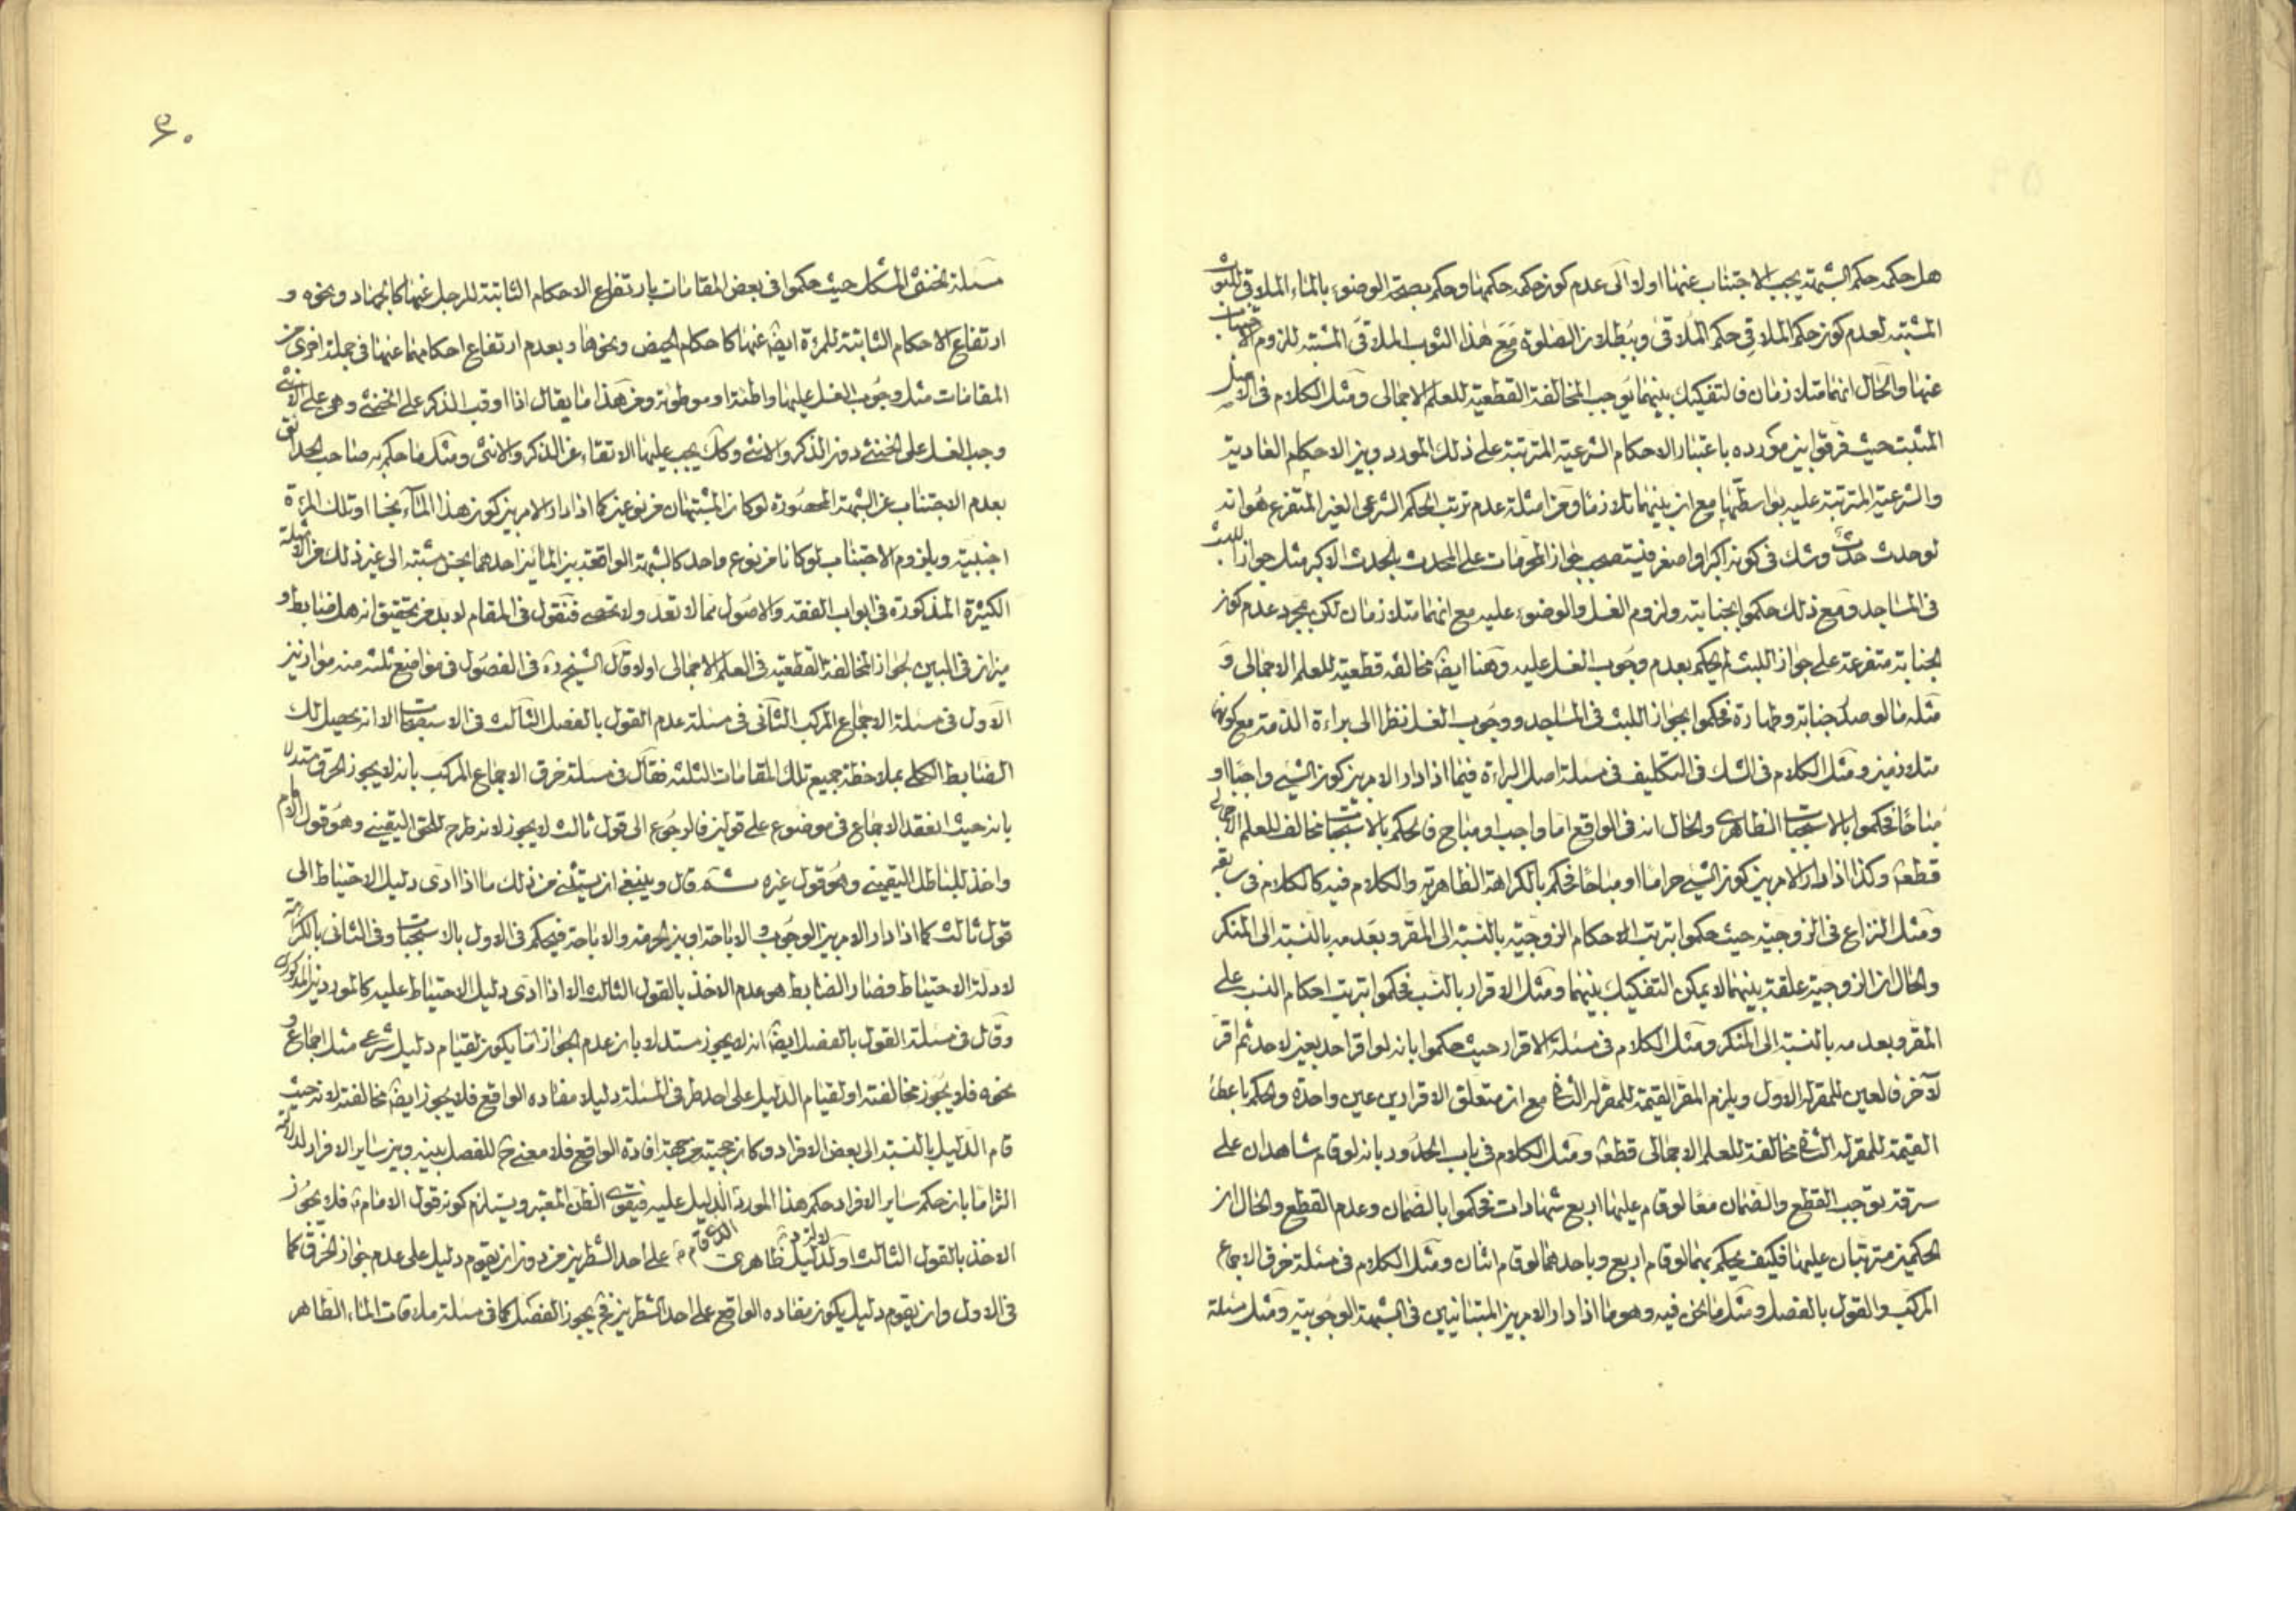 هل حكمه حكم الشبهة يجب الاجتناب عنها اولا الى عدم كونه حكمه حكمها وحكم بصحة الوضوء بالماء الملاقى للثوب
المشتبه لعدم كون حكم الملاقِى حكم الملاقى وببطلان الصلوة مع هذا الثوب الملاقى المشتبه للزوم الاجتناب
عنها والحال انهما متلازمان فالتفكيك بينهما يوجب المخالفة القطعية للعلم الاجمالى ومثل الكلام فى الاصل
المثبت حيث فرقوا بين مورده باعتبار الاحكام الشرعية المترتبة على ذلك المورد وبين الاحكام العادية
والشرعية المترتبة عليه بواسطتها مع ان بينهما تلازما ومن امثلة عدم ترتب الحكم الشرعى الغير المتفرع هو انه
لو حدث حدث وشك فى كونه اكبر او اصغر فيستصحب جواز المحرمات على المحدث بالحدث الاكبر مثل جواز اللبث
فى المساجد ومع ذلك حكموا بجنابته ولزوم الغسل والوضوء عليه مع انهما متلازمان لكن بمجرد عدم كون
الجنابة متفرعة على جواز اللبث لم يحكم بعدم وجوب الغسل عليه وهنا ايضا مخالفة قطعية للعلم الاجمالى و
مثله ما لو صدر جنابة وطهارة فحكموا بجواز اللبث فى المساجد ووجوب الغسل نظرا الى براءة الذمة مع كونهما
متلازمين ومثل الكلام فى الشك فى التكليف فى مسئلة اصل البراءة فيما اذا دار الامر بين كون الشئ واجبا او
مباحا فحكموا بالاستحباب الظاهرى والحال انه فى الواقع اما واجب او مباح فالحكم بالاستحباب مخالف للعلم الاجمالى
قطعا وكذا اذا دار الامر بين كون الشئ حراما او مباحا فحكم بالكراهة الظاهرية والكلام فيه كالكلام فى سابقه
ومثل النزاع فى الزوجية حيث حكموا بترتب الاحكام الزوجية بالنسبة الى المقر وبعدمه بالنسبة الى المنكر
والحال ان الزوجية علقة بينهما لا يمكن التفكيك بينهما ومثل الاقرار بالنسب فحكموا بترتب احكام النسب على
المقر وبعدمه بالنسبة الى المنكر ومثل الكلام فى مسئلة الاقرار حيث حكموا بانه لو اقر احد بعين لاحد ثم اقر
لآخر فالعين للمقر له الاول ويلزم المقر القيمة للمقر له الثانى مع ان متعلق الاقرارين عين واحدة والحكم باعطاء
القيمة للمقر له الثانى مخالفة للعلم الاجمالى قطعا ومثل الكلام فى باب الحدود بانه لو قام شاهدان على
سرقة يوجب القطع والضمان معا لو قام عليها اربع شهادات فحكموا بالضمان وعدم القطع والحال ان
الحكمين مترتبان عليها فكيف يحكم بهما لو قام اربع وباحدهما لو قام اثنان ومثل الكلام فى مسئلة خرق الاجماع
المركب والقول بالفصل ومثل ما نحن فيه وهو ما اذا دار الامر بين المتباينين فى الشبهة الوجوبية ومثل مسئلة
۶۰
مسئلة الخنثى المشكل حيث حكموا فى بعض المقامات بارتفاع الاحكام الثابتة للرجل عنها كالجهاد ونحوه و
ارتفاع الاحكام الثابتة للمرءة ايضا عنها كاحكام الحيض ونحوها وبعدم ارتفاع احكامهما عنها فى جملة اخرى من
المقامات مثل وجوب الغسل عليها واطئة او موطوئة ومن هذا ما يقال اذا اوقب الذكر على الخنثى وهى على الانثى
وجب الغسل على الخنثى دون الذكر والانثى وكك يجب عليها الاتقاء عن الذكر والانثى ومثل ما حكم به صاحب الحدائق
بعدم الاجتناب عن الشبهة المحصورة لو كان المشتبهان من نوعين كما اذا دار الامر بين كون هذا المآء نجسا او تلك المرءة
اجنبية وبلزوم الاجتناب لو كانا من نوع واحد كالشبهة الواقعة بين المائين احدهما نجس مشتبه الى غير ذلك من الامثلة
الكثيرة المذكورة فى ابواب الفقه والاصول مما لا تعد ولا تحصى فنقول فى المقام لا بد من تحقيق انه هل ضابط و
ميزان فى البين لجواز المخالفة القطعية فى العلم الاجمالى اولا قال الشيخ ره فى الفصول فى مواضع ثلثة منه موازين
الاول فى مسئلة الاجماع المركب الثانى فى مسئلة عدم القول بالفصل الثالث فى الاستصحاب الا انه يحصل لك
الضابط الكلى بملاحظة جميع تلك المقامات الثلثة فقال فى مسئلة خرق الاجماع المركب بانه لا يجوز الخرق مستدلا
بانه حيث انعقد الاجماع فى موضوع على قولين فالرجوع الى قول ثالث لا يجوز لانه طرح للحق اليقينى وهو قول الامام
واخذ للباطل اليقينى وهو قول غيره ثم قال وينبغى ان يستثنى من ذلك ما اذا ادى دليل الاحتياط الى
قول ثالث كما اذا دار الامر بين الوجوب والاباحة او بين الحرمة والاباحة فيحكم فى الاول بالاستحباب وفى الثانى بالكراهة
لادلة الاحتياط فصار الضابط هو عدم الاخذ بالقول الثالث الا اذا ادى دليل الاحتياط عليه كالموردين المذكورين
وقال فى مسئلة القول بالفصل ايضا انه لا يجوز مستدلا بان عدم الجواز اما يكون لقيام دليل شرعى مثل اجماع و
نحوه فلا يجوز مخالفته او لقيام الدليل على احد طرفى المسئلة دليلا مفاده الواقع فلا يجوز ايضا مخالفته لانه حيث
قام الدليل بالنسبة الى بعض الافراد وكان حجيته من جهة افادة الواقع فلا معنى ح للفصل بينه وبين ساير الافراد لدلالته
التزاما بان حكم ساير الافراد حكم هذا المورد الدليل عليه فيقوى الظن المعتبر ويستلزم كونه قول الامام ع فلا يجوز
الاخذ بالقول الثالث او لدليل ظاهرى قام على احد الشطرين من دون ان يقوم دليل على عدم جواز الخرق كما
فى الاول وان يقوم دليل يكون مفاده الواقع على احد الشطرين فح يجوز الفصل كما فى مسئلة ملاقات الماء الظاهر